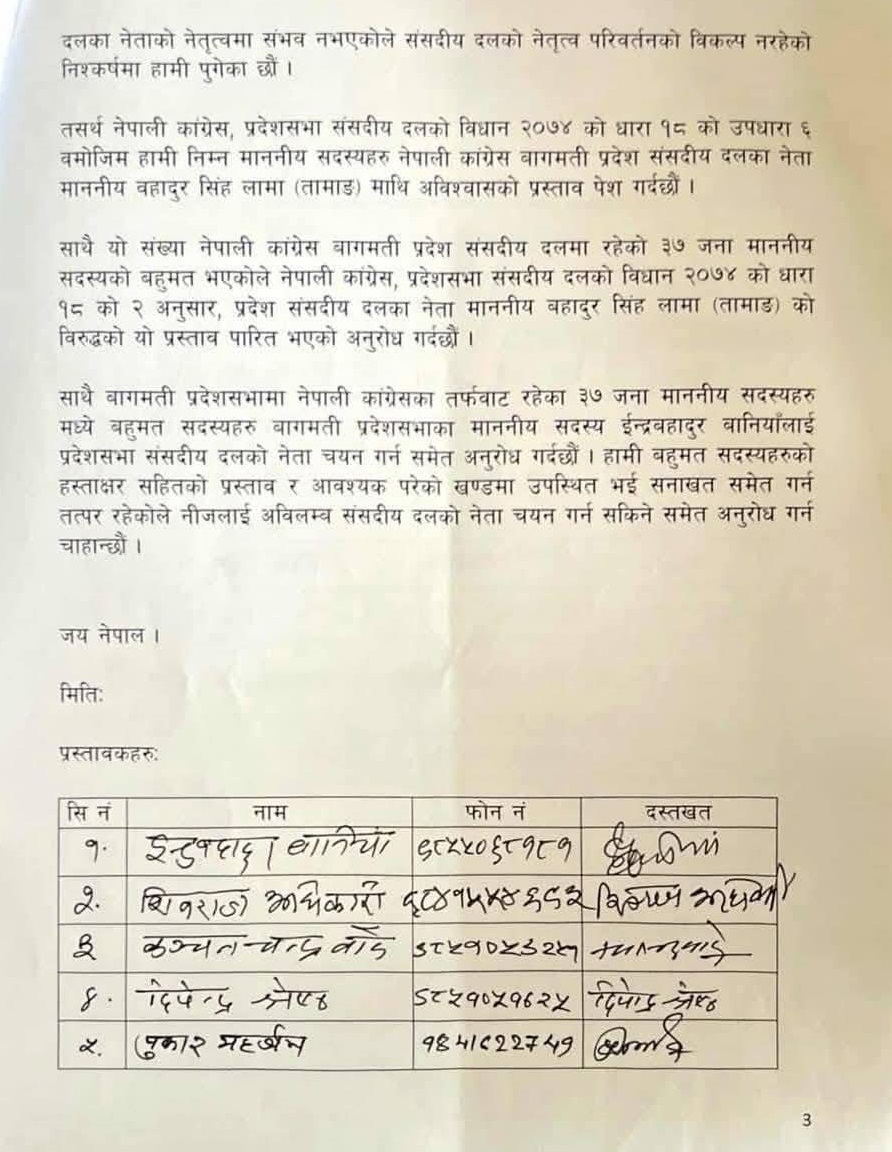 दलका नेताको नेतृत्वमा संभव नभएकोले संसदीय दलको नेतृत्व परिवर्तनको विकल्प नरहेको
निश्कर्षमा हामी पुगेका छौं ।
तसर्थ नेपाली कांग्रेस, प्रदेशसभा संसदीय दलको विधान २०७४ को धारा १८ को उपधारा ६
वमोजिम हामी निम्न माननीय सदस्यहरु नेपाली कांग्रेस बागमती प्रदेश संसदीय दलका नेता
माननीय वहादुर सिंह लामा (तामाङ) माथि अविश्वासको प्रस्ताव पेश गर्दछौं ।
साथै यो संख्या नेपाली कांग्रेस बागमती प्रदेश संसदीय दलमा रहेको ३७ जना माननीय
सदस्यको बहुमत भएकोले नेपाली कांग्रेस, प्रदेशसभा संसदीय दलको विधान २०७४ को धारा
१८ को २ अनुसार, प्रदेश संसदीय दलका नेता माननीय वहादुर सिंह लामा (तामाङ) को
विरुद्धको यो प्रस्ताव पारित भएको अनुरोध गर्दछौं ।
साथै बागमती प्रदेशसभामा नेपाली कांग्रेसका तर्फवाट रहेका ३७ जना माननीय सदस्यहरु
मध्ये बहुमत सदस्यहरु बागमती प्रदेशसभाका माननीय सदस्य ईन्द्रवहादुर वानियाँलाई
प्रदेशसभा संसदीय दलको नेता चयन गर्न समेत अनुरोध गर्दछौं । हामी बहुमत सदस्यहरुको
हस्ताक्षर सहितको प्रस्ताव र आवश्यक परेको खण्डमा उपस्थित भई सनाखत समेत गर्न
तत्पर रहेकोले नीजलाई अविलम्ब संसदीय दलको नेता चयन गर्न सकिने समेत अनुरोध गर्न
चाहान्छौं ।
जय नेपाल ।
मिति:
प्रस्तावकहरु:
सि नं नाम फोन नं दस्तखत
१. वानियाँ
२. शिवराज अधिकारी
३
४. दिपेन्द्र श्रेष्ठ ९८५१०५१६२५ दिपेन्द्र श्रेष्ठ
५. पुकार महर्जन
3